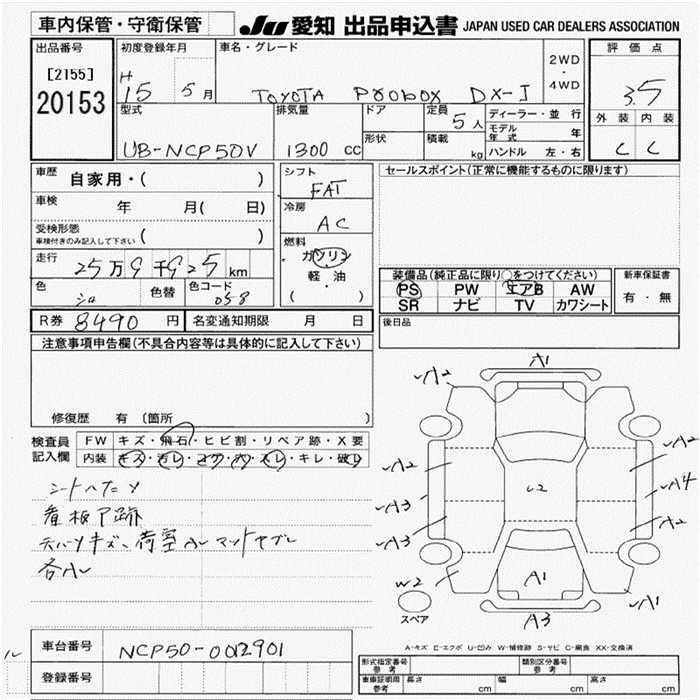 車内保管・守衛保管
JU 愛知 出品申込書 JAPAN USED CAR DEALERS ASSOCIATION
出品番号
[2155]
20153
初度登録年月
H 15 5月
車名・グレード
TOYOTA PROBOX DX-J
2WD
・
4WD
評価点
3.5
外装 内装
C C
型式
UB-NCP50V
排気量
1300 CC
ドア
形状
定員
5人
積載
kg
ディーラー・並行
モデル年式 年
ハンドル 左・右
車歴
自家用・( )
車検
年 月( 日)
受検形態
車検付きのみ記入して下さい ( )
走行
25万9千925km
色
シロ
色替
色コード
058
シフト
FAT
冷房
AC
燃料
ガソリン
軽・油
( )
セールスポイント(正常に機能するものに限ります)
装備品(純正品に限り○をつけてください)
PS PW エアB AW
SR ナビ TV カワシート
新車保証書
有・無
後日品
R券 8490 円
名変通知期限 月 日
注意事項申告欄(不具合内容等は具体的に記入して下さい)
修復歴 有 (箇所 )
検査員
記入欄
FW キズ・飛石・ヒビ割・リペア跡・X要
内装 キズ・汚レ・コゲ・穴・スレ・キレ・破レ
看板ア跡
各ハレ
A1
A2
A2
A2
A3
A4
A3
A2
C2
A1
W2
A3
スペア
A-キズ E-エクボ U-凹み W-補修跡 S-サビ C-腐食 XX-交換済
車台番号
NCP50-0012901
登録番号
形式指定番号
参考
類別区分番号
参考
車庫証明用
参考
長さ cm
幅 cm
高さ cm